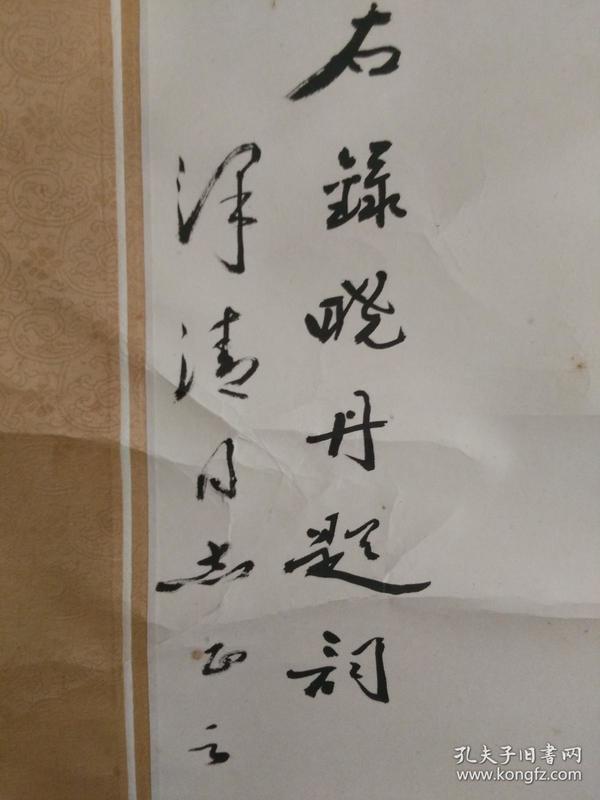 右録晓丹题词
泽清同志正之
孔夫子旧书网
www.kongfz.com